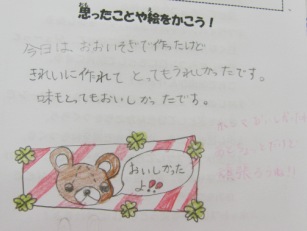 思ったことや絵をかこう！
今日は、おおいそぎで作ったけど
きれいに作れて とってもうれしかったです。
味もとってもおいしかったです。
おいしかった
よ!!